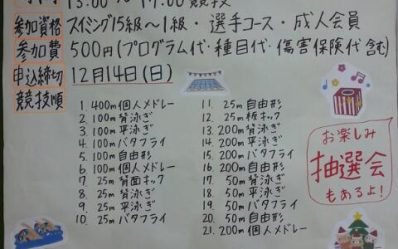 13:00 ～ 17:00 競技
参加資格 スイミング15級～1級・選手コース・成人会員
参加費 500円(プログラム代・種目代・傷害保険代 含む)
申込締切 12月14日(日)
競技順
1. 400m個人メドレー
2. 100m背泳ぎ
3. 100m平泳ぎ
4. 100mバタフライ
5. 100m自由形
6. 100m個人メドレー
7. 25m背面キック
8. 25m背泳ぎ
9. 25m平泳ぎ
10. 25mバタフライ
11. 25m自由形
12. 25m板キック
13. 200m背泳ぎ
14. 200m平泳ぎ
15. 200mバタフライ
16. 200m自由形
17. 50m背泳ぎ
18. 50m平泳ぎ
19. 50mバタフライ
20. 50m自由形
21. 200m個人メドレー
お楽しみ
抽選会
もあるよ!